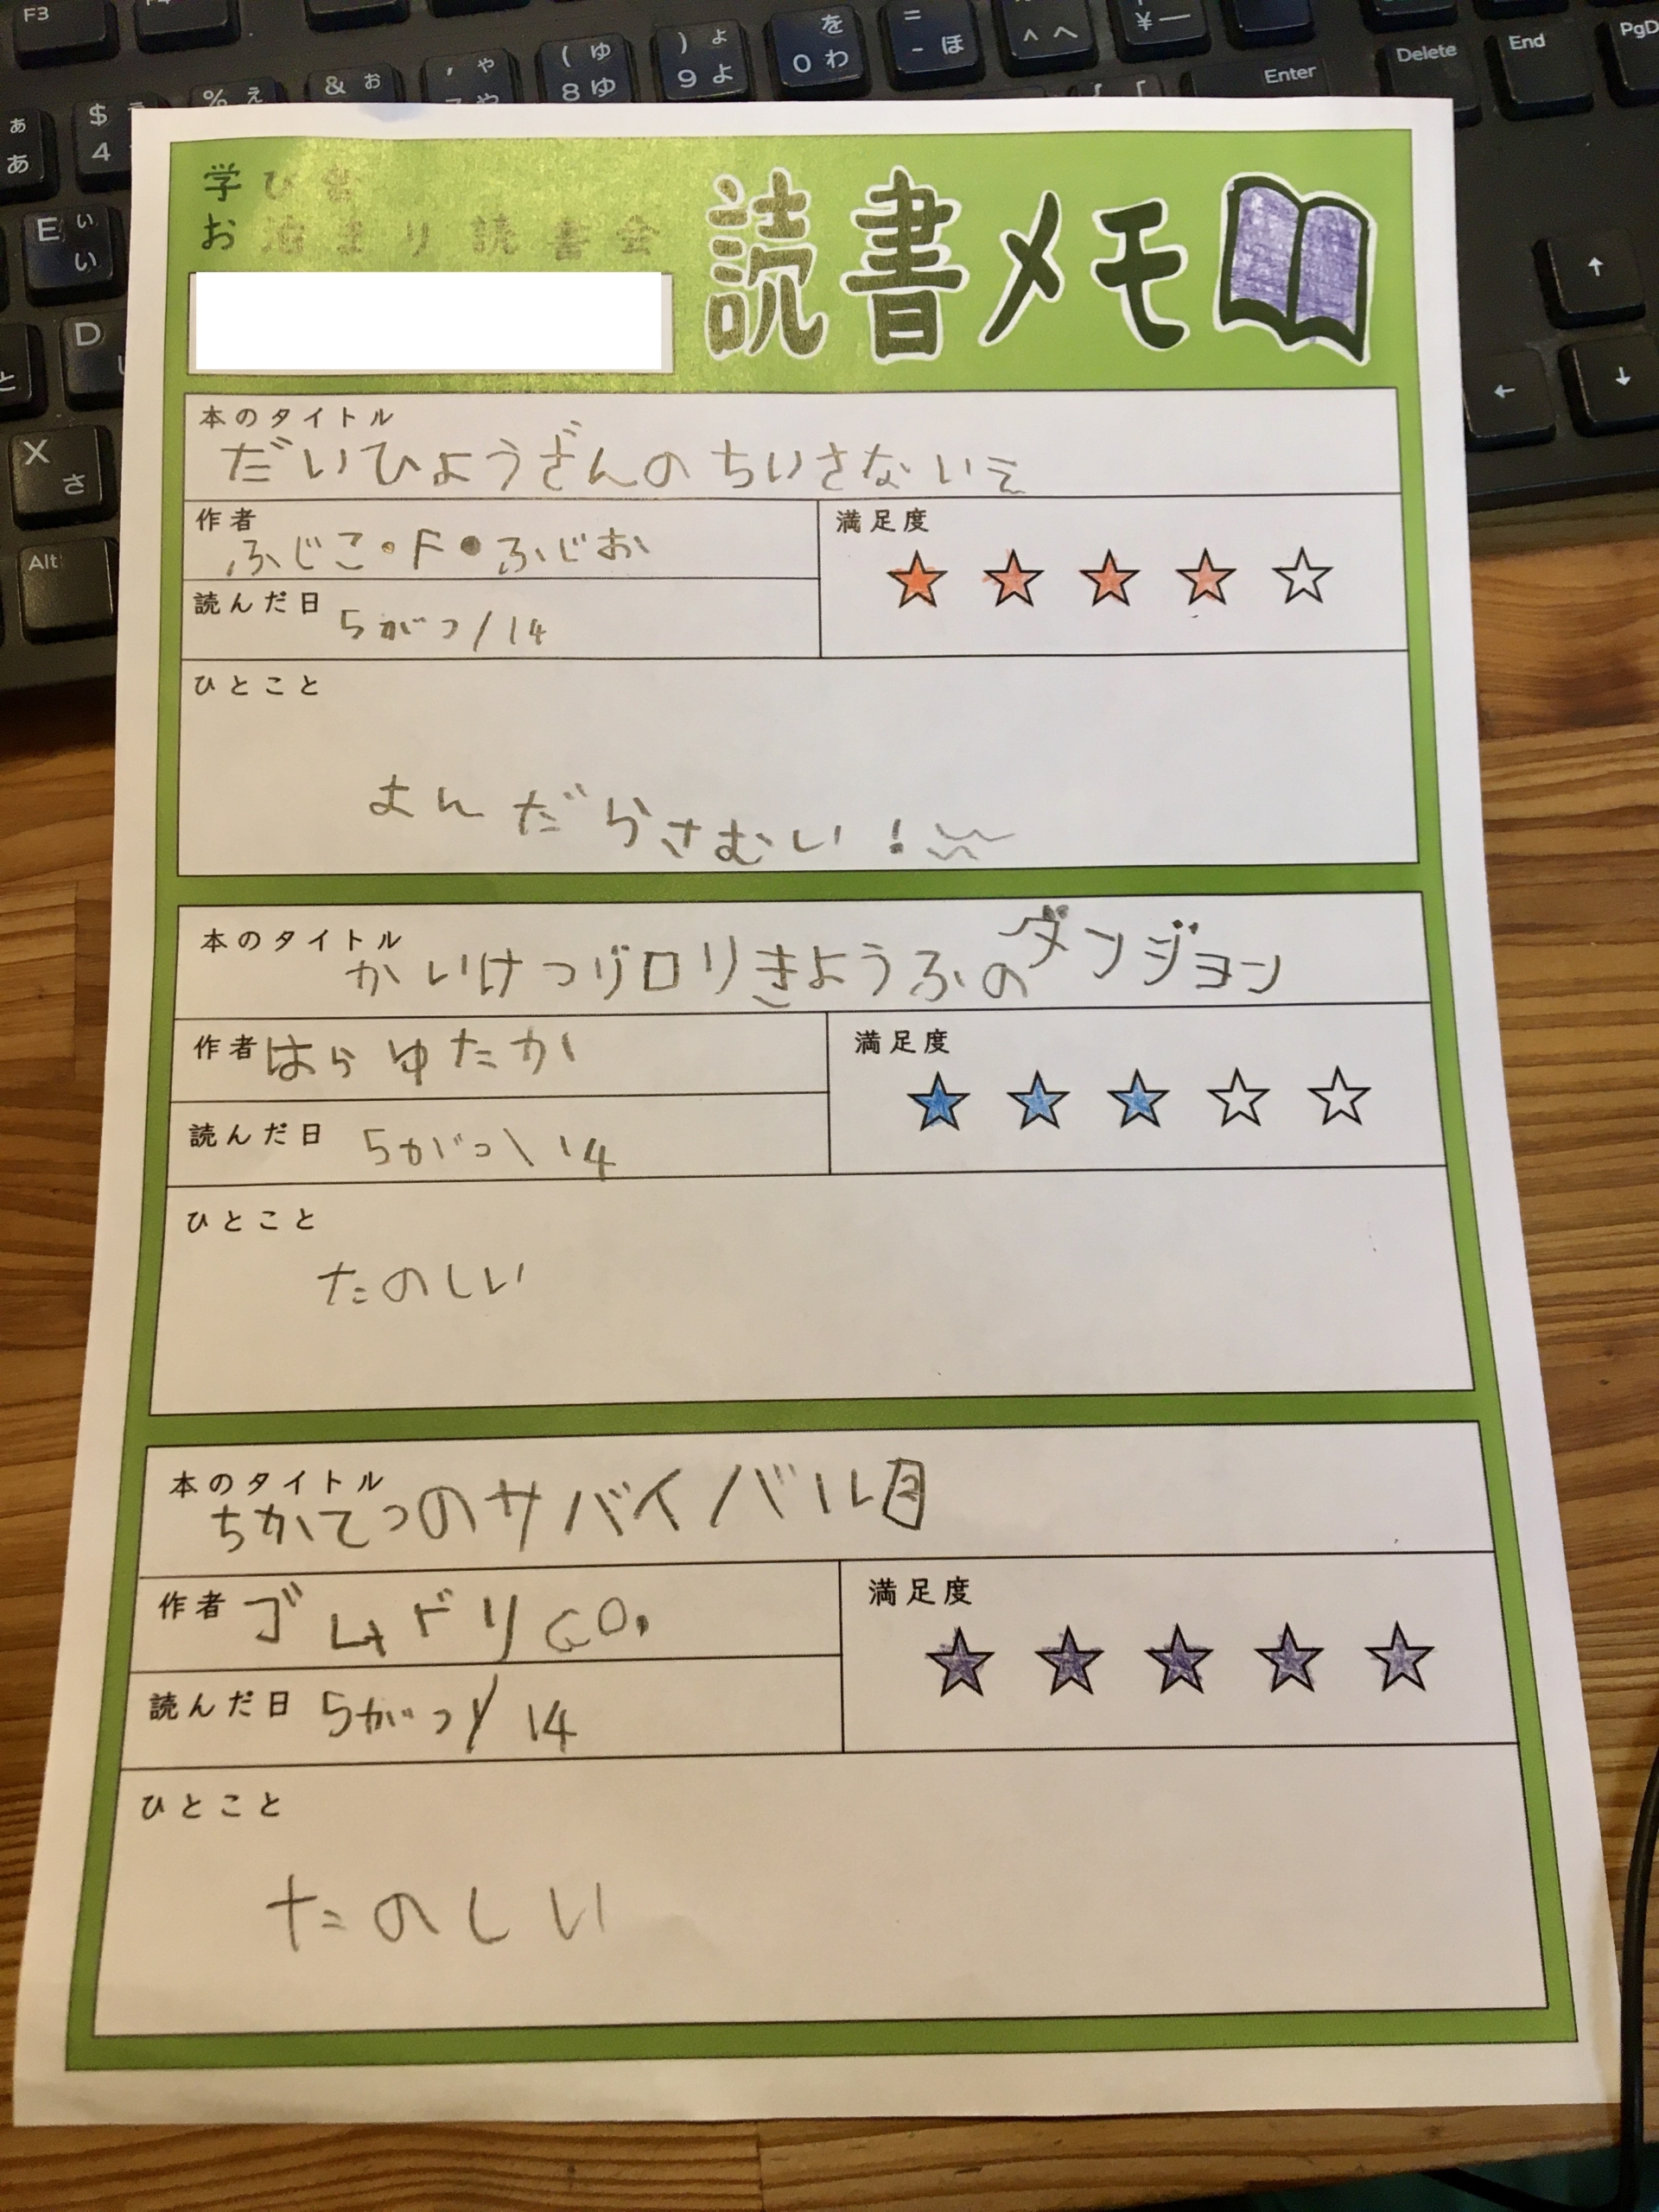 学び舎
お泊まり読書会
読書メモ
本のタイトル
だいひょうざんのちいさないえ
作者
ふじこ・F・ふじお
満足度
読んだ日
5がつ/14
ひとこと
よんだらさむい!
本のタイトル
かいけつゾロリきょうふのダンジョン
作者
はらゆたか
満足度
読んだ日
5がつ\14
ひとこと
たのしい
本のタイトル
ちかてつのサバイバル2
作者
ゴムドリco.
満足度
読んだ日
5がつ/14
ひとこと
たのしい
F3
F4
$ 4
% ぇ
& ぉ
' ゃ
( ゅ
8 ゆ
) ょ
9 よ
を
0 わ
=
- ほ
^ へ
¥ ー
Enter
Delete
End
PgD
ぁ
あ
E ぃ
い
D
と
X
さ
Alt
↑
←
↓